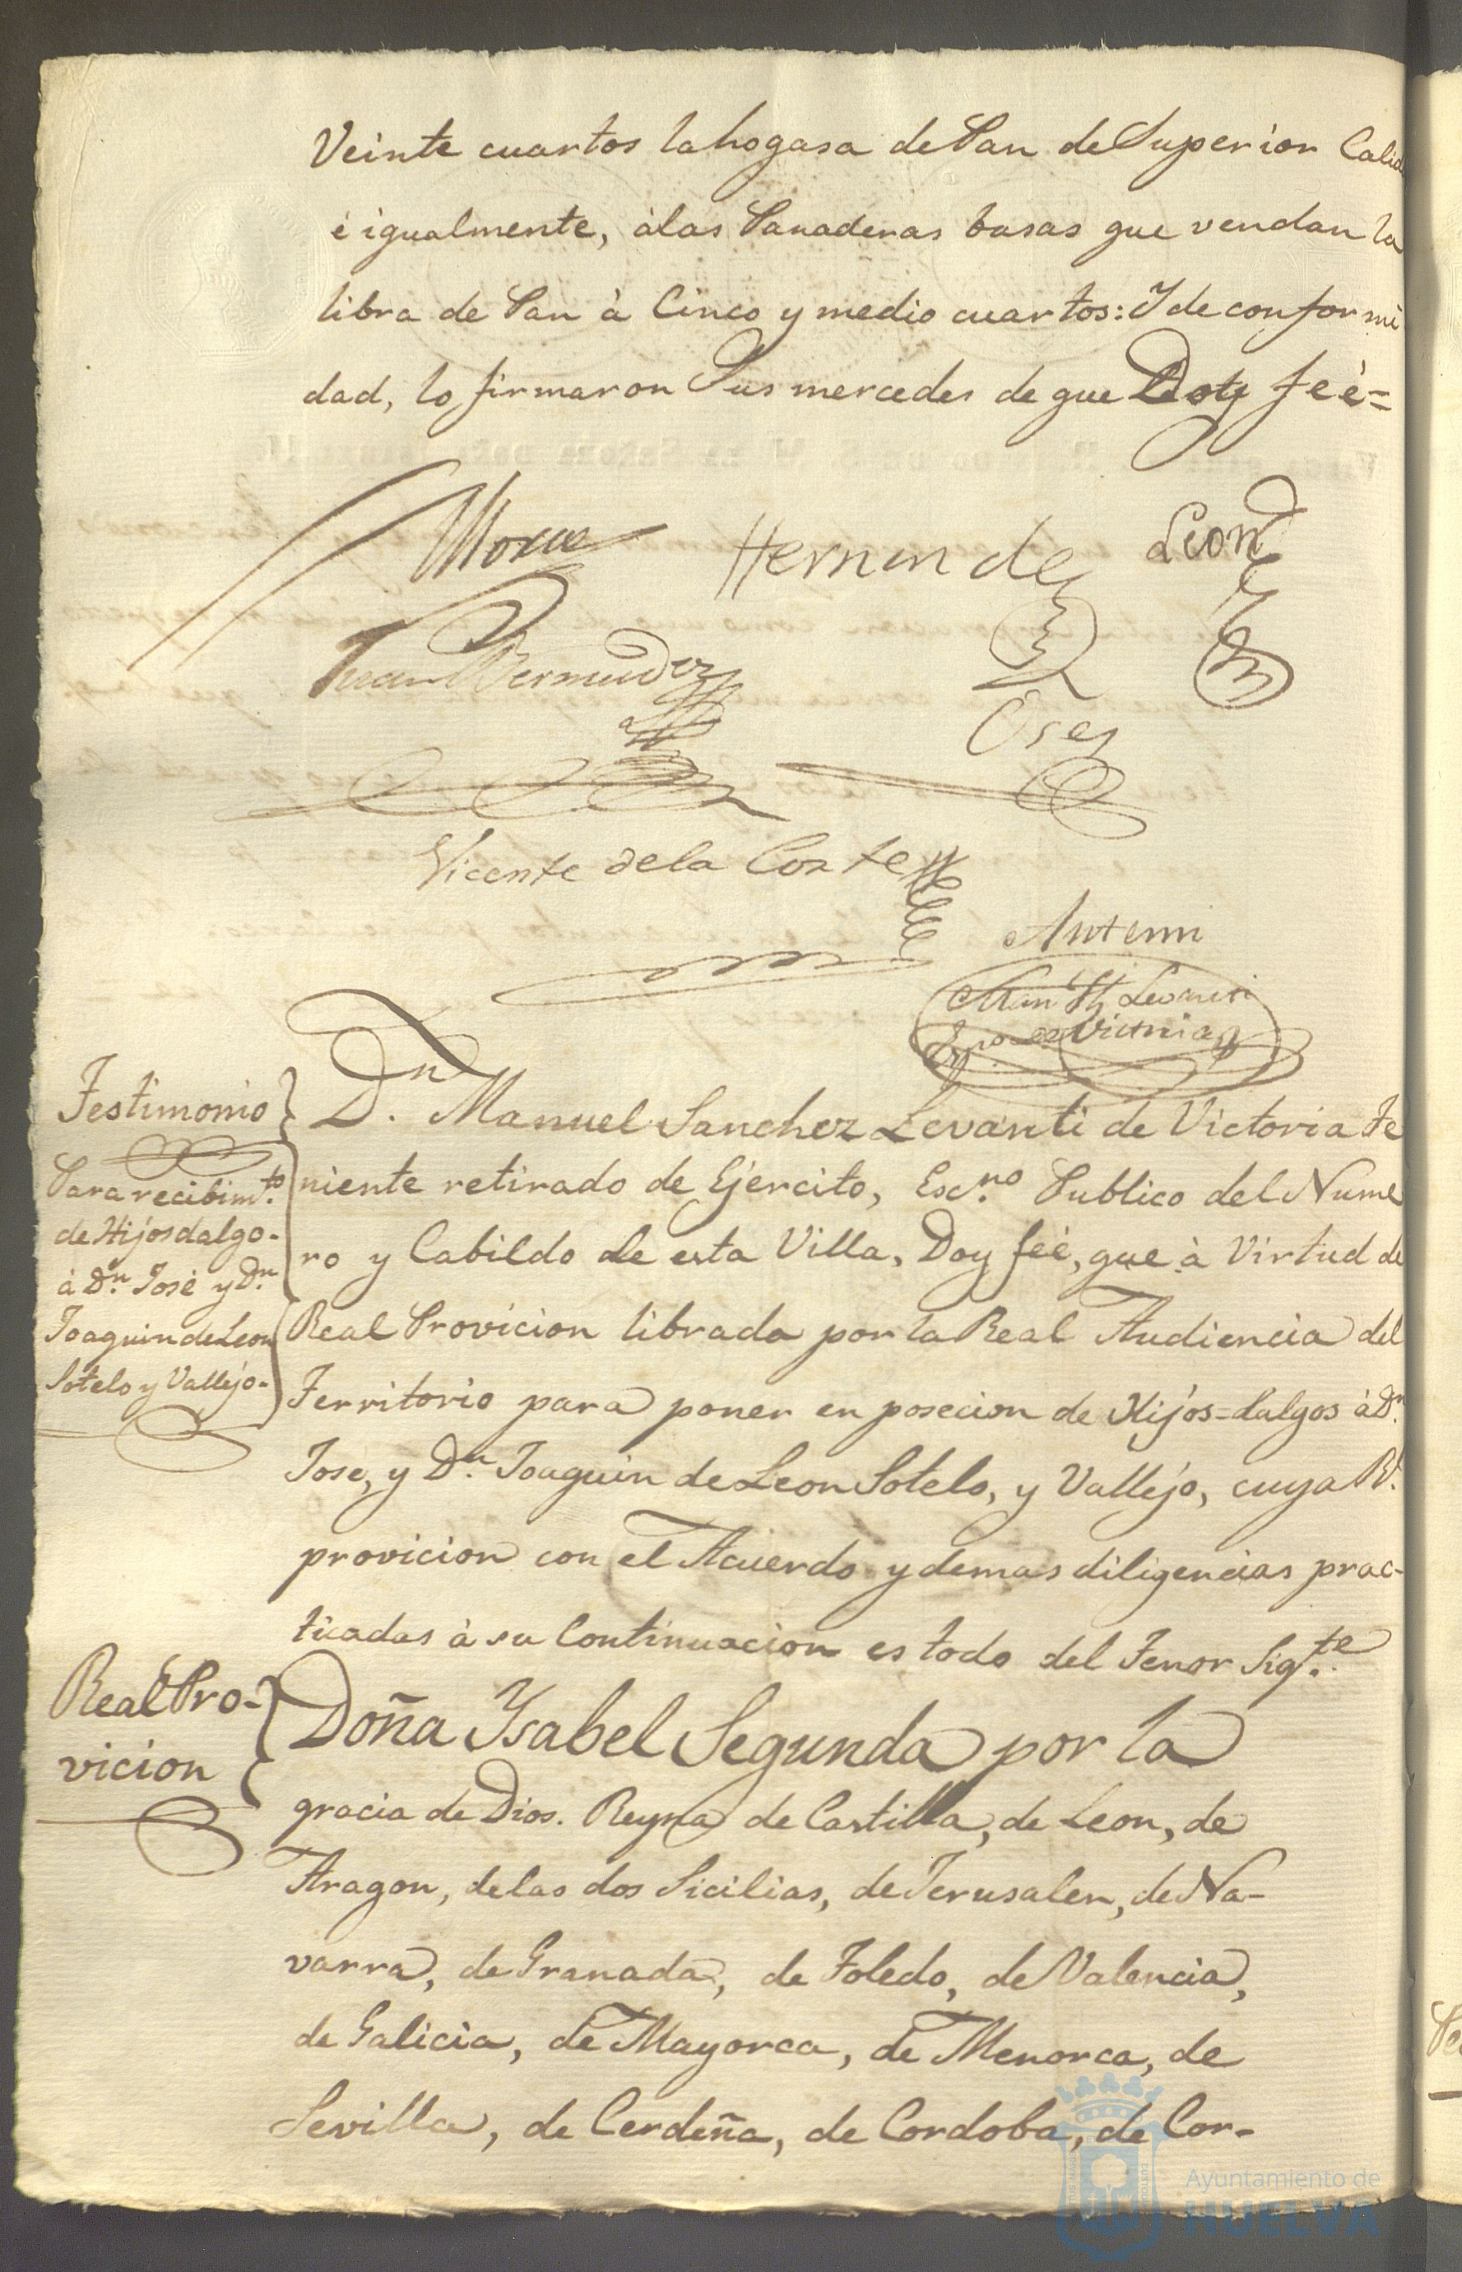 Veinte cuartos la hogasa de Pan de Superior Calid
é igualmente, à las Panaderas basas que vendan la
libra de Pan à Cinco y medio cuartos: Y de conformi
dad, lo firmaron Sus mercedes de que Doy feé=
Hernandez
Leon
Juan Bermudez
Oses
Vicente de la Corte
Antemi
Man Sz Levanti
de Victoria
Testimonio
Para recibimto.
de Hijosdalgo-
à Dn. José y Dn.
Joaquin de Leon
Sotelo y Vallejo-
Dn. Manuel Sanchez Levanti de Victoria Te
niente retirado de Ejercito, Escno. Publico del Nume
ro y Cabildo de esta Villa, Doy feé, que à Virtud de
Real Provicion librada por la Real Audiencia del
Territorio para poner en posecion de Hijos=dalgos à Dn.
Jose, y Dn. Joaquin de Leon Sotelo, y Vallejo, cuya Rl.
provicion con el Acuerdo y demas diligencias prac-
ticadas à su Continuacion es todo del Tenor Sigte.
Real Pro-
vicion
Doña Ysabel Segunda por la
gracia de Dios. Reyna de Castilla, de Leon, de
Aragon, de las dos Sicilias, de Jerusalen, de Na-
varra, de Granada, de Toledo, de Valencia,
de Galicia, de Mayorca, de Menorca, de
Sevilla, de Cerdeña, de Cordoba, de Cor-
Ayuntamiento de
HUELVA